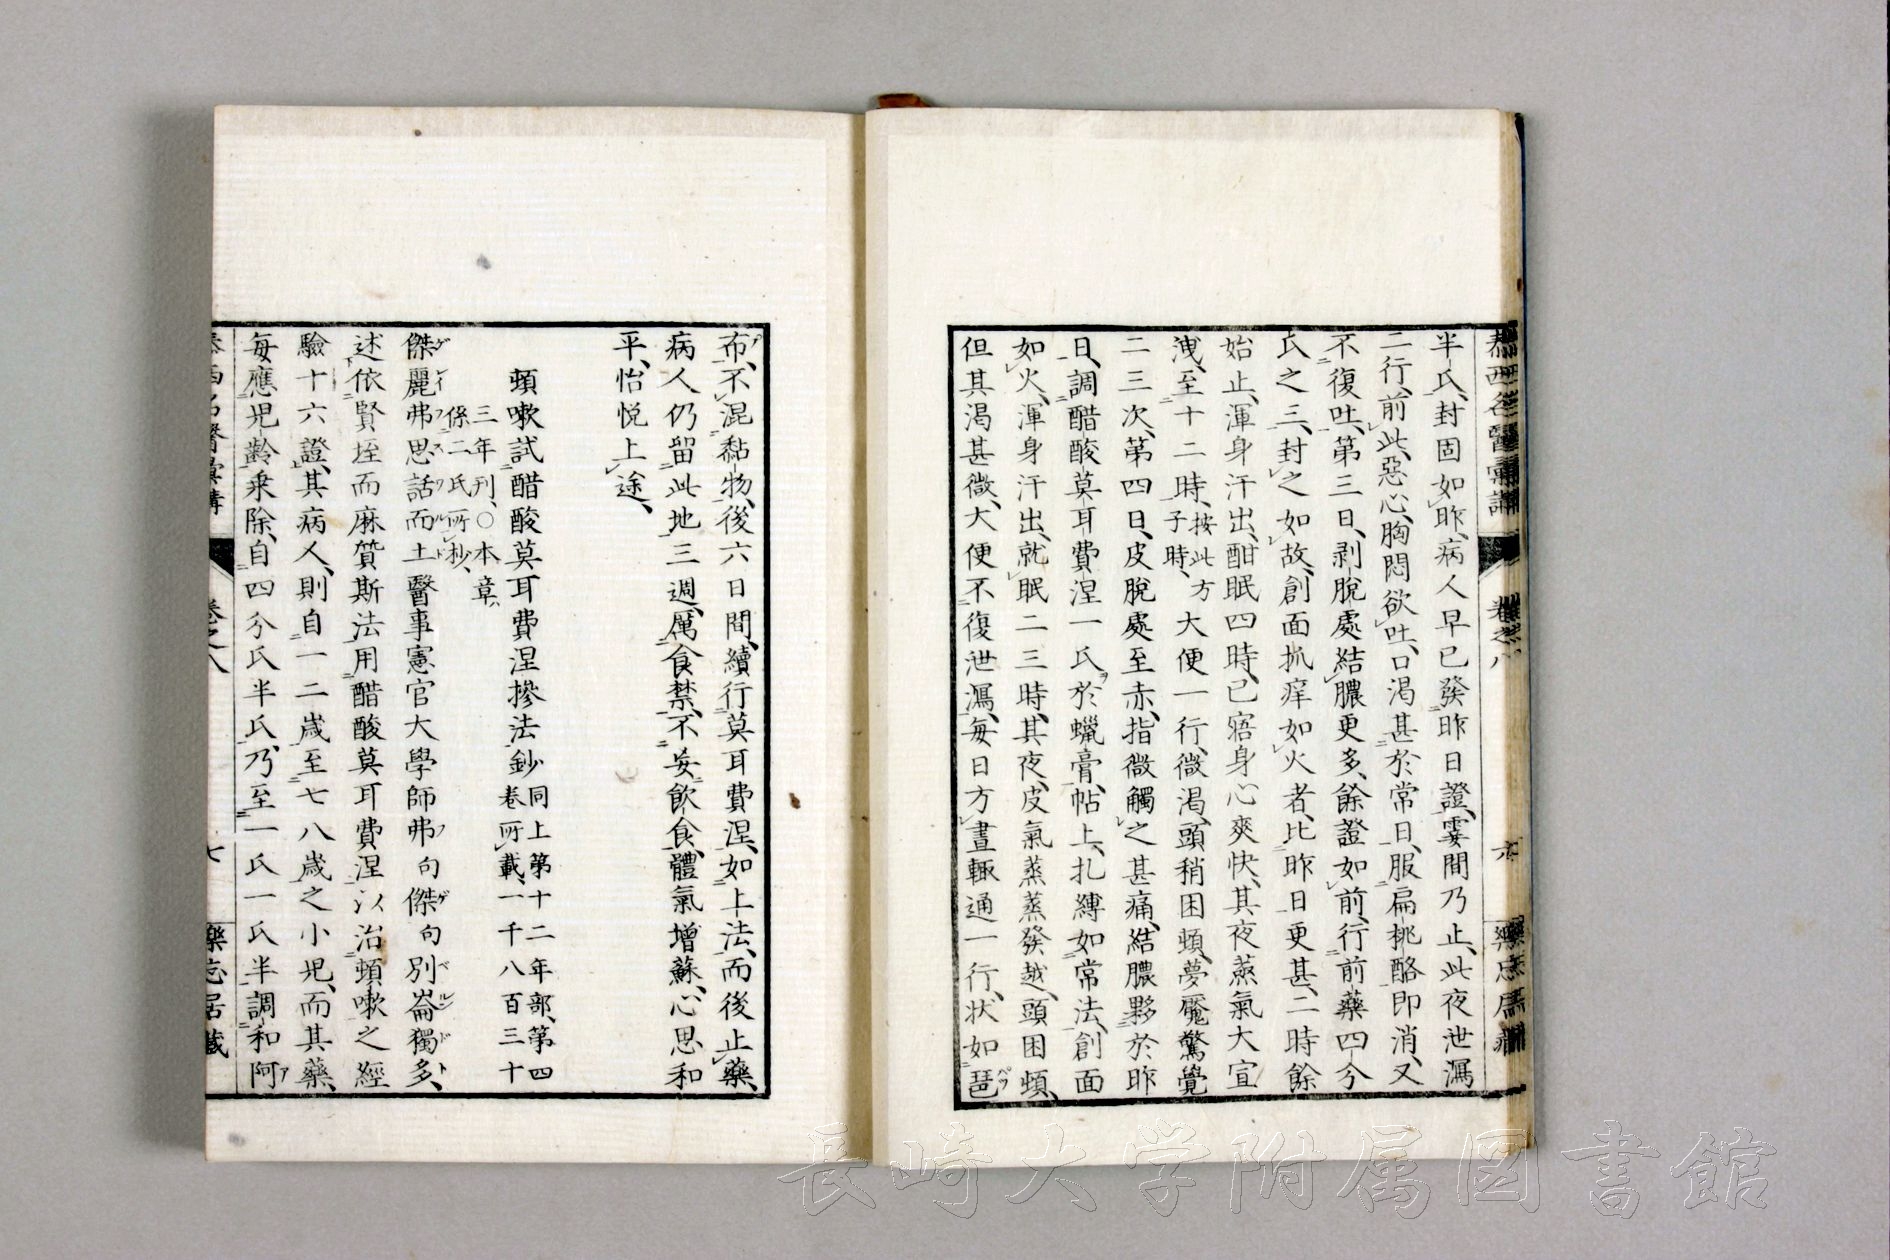 泰西名醫彙講 卷之八 六 樂志居藏
半氏、封固如昨、病人早已發昨日證、霎間乃止、此夜泄瀉
二行、前此、惡心、胸悶欲吐、口渴甚於常日、服扁桃酪即消、又
不復吐、第三日、剥脫處結膿更多、餘證如前、行前藥四分
氏之三、封之如故、創面抓痒如火者、比昨日更甚、二時餘
始止、渾身汗出、酣眠四時、已寤身心爽快、其夜蒸氣大宜
洩、至十二時、子時、按此方 大便一行、微渴、頭稍困頓、夢魘驚覺
二三次、第四日、皮脫處至赤、指微觸之甚痛、結膿夥於昨
日、調醋酸莫耳費涅一氏於蠟膏、帖上、扎縛如常法、創面
如火、渾身汗出、就眠二三時、其夜、皮氣蒸蒸發越、頭困頓、
但其渴甚微、大便不復泄瀉、每日方晝輙通一行、状如琶
布、不混黏物、後六日間、續行莫耳費涅、如上法、而後止藥、
病人仍留此地三週、厲食禁、不妄飲食、體氣增蘇、心思和
平、怡悦上途、
頓嗽試醋酸莫耳費涅摻法鈔 同上第十二年部、第四
卷所載、一千八百三十
三年刊、○本章、
係二氏所抄、
傑麗弗思話而土醫事憲官大學師弗句傑句別崙獨多、
述依賢垤而麻質斯法用醋酸莫耳費涅以治頓嗽之經
驗十六證、其病人、則自一二歲至七八歲之小児、而其藥、
每應児齡乗除、自四分氏半氏、乃至一氏一氏半調和阿
泰西名醫彙講 卷之八 七 樂志居藏